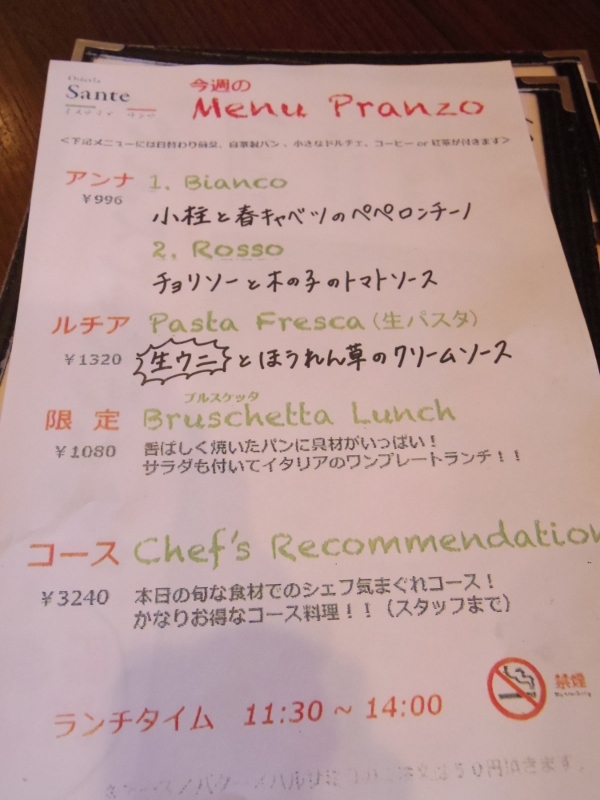 Osteria
Sante
今週の
Menu Pranzo
<下記メニューには日替わり前菜、自家製パン、小さなドルチェ、コーヒー or 紅茶が付きます>
アンナ 1. Bianco
¥996
小柱と春キャベツのペペロンチーノ
2. Rosso
チョリソーと木の子のトマトソース
ルチア Pasta Fresca (生パスタ)
¥1320 生ウニとほうれん草のクリームソース
ブルスケッタ
限定 Bruschetta Lunch
¥1080 香ばしく焼いたパンに具材がいっぱい!
サラダも付いてイタリアのワンプレートランチ!!
コース Chef's Recommendation
¥3240 本日の旬な食材でのシェフ気まぐれコース!
かなりお得なコース料理!!(スタッフまで)
禁煙
ランチタイム 11:30 ~ 14:00